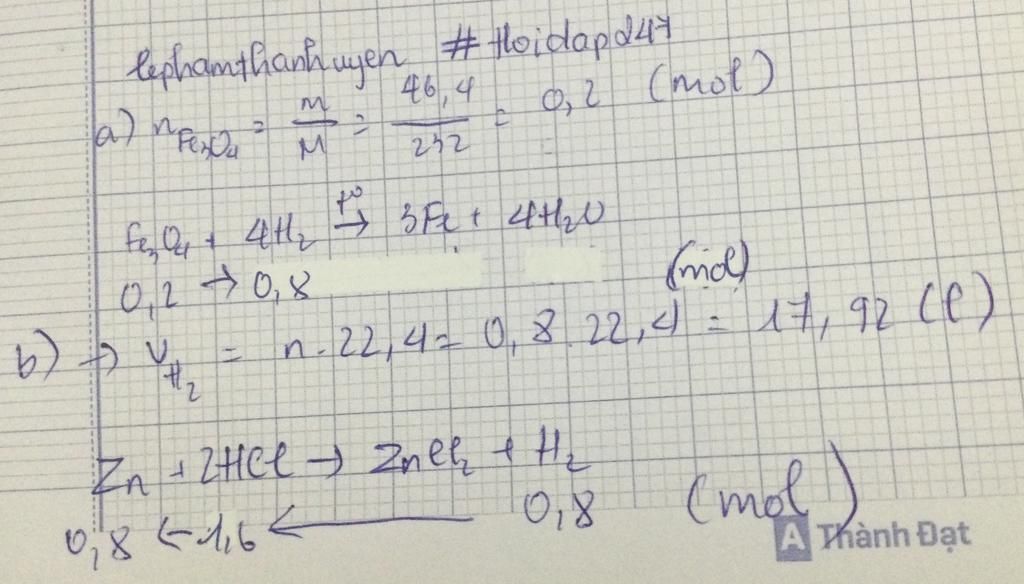 lephamthanhuyen # Hoidap247
a) nFe3O4 = m/M = 46,4/232 = 0,2 (mol)
Fe3O4 + 4H2 t⁰→ 3Fe + 4H2O
0,2 → 0,8 (mol)
b) → VH2 = n.22,4 = 0,8.22,4 = 17,92 (l)
Zn + 2HCl → ZnCl2 + H2
0,8 ← 1,6 ← 0,8 (mol)
A Thành Đạt